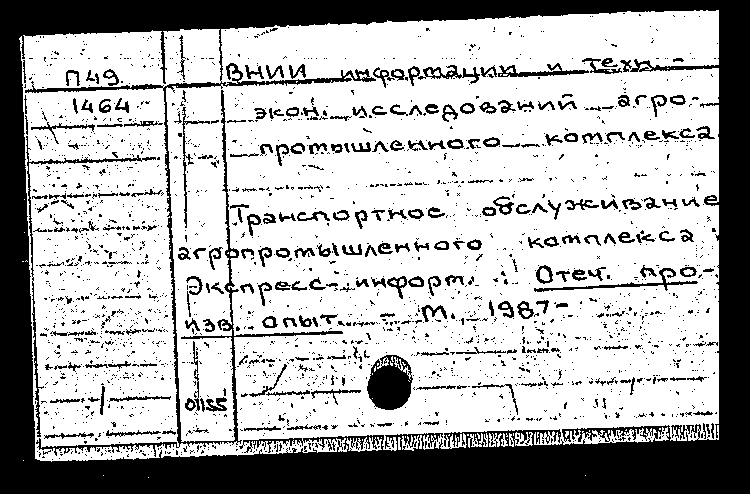 П49
1464
ВНИИ информации и техн.-
экон. исследований агро-
промышленного комплекса
Транспортное обслуживание
агропромышленного комплекса :
Экспресс-информ. : Отеч. про-
изв. опыт. - М., 1987-
01155